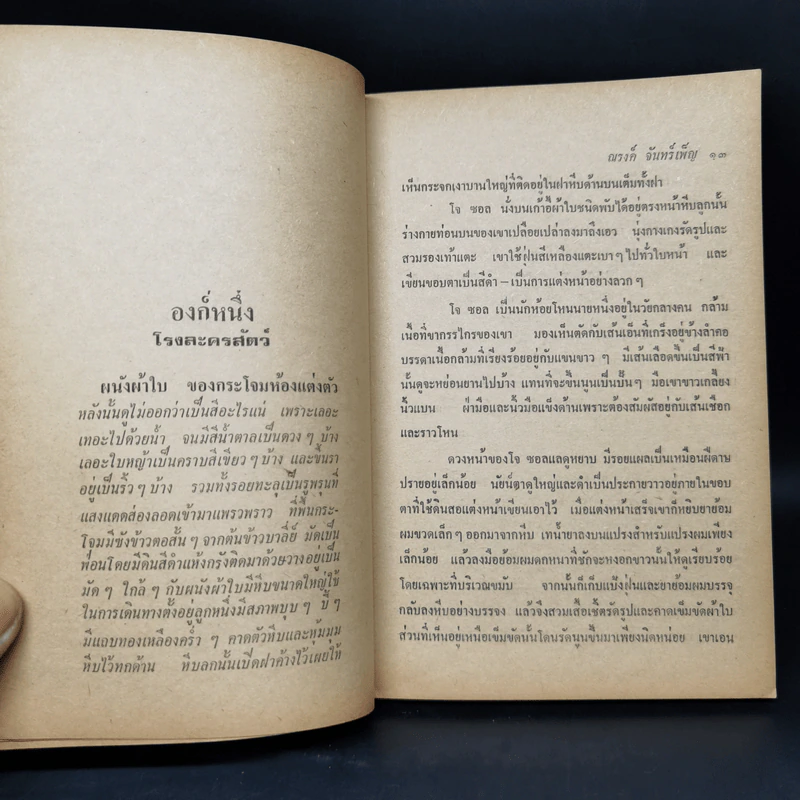 องก์หนึ่ง
โรงละครสัตว์
ผนังผ้าใบ ของกระโจมห้องแต่งตัว
หลังนั้นดูไม่ออกว่าเป็นสีอะไรแน่ เพราะเลอะ
เทอะไปด้วยน้ำ จนมีสีน้ำตาลเป็นดวง ๆ บ้าง
เลอะใบหญ้าเป็นคราบสีเขียว ๆ บ้าง และขึ้นรา
อยู่เป็นริ้ว ๆ บ้าง รวมทั้งรอยทะลุเป็นรูพรุนที่
แสงแดดส่องลอดเข้ามาแพรวพราว ที่พื้นกระ-
โจมมีซังข้าวตอสั้น ๆ จากต้นข้าวบาลีย์ มัดเป็น
ฟ่อนโดยมีดินสีดำแห้งกรังติดมาด้วยวางอยู่เป็น
มัด ๆ ใกล้ ๆ กับผนังผ้าใบมีหีบขนาดใหญ่ใช้
ในการเดินทางตั้งอยู่ลูกหนึ่งมีสภาพบุบ ๆ บี้ ๆ
มีแถบทองเหลืองคร่ำ ๆ คาดตัวหีบและหุ้มมุม
หีบไว้ทุกด้าน หีบลูกนั้นเปิดฝาค้างไว้เผยให้
ณรงค์ จันทร์เพ็ญ ๑๓
เห็นกระจกเงาบานใหญ่ที่ติดอยู่ในฝาหีบด้านบนเต็มทั้งฝา
โจ ซอล นั่งบนเก้าอี้ผ้าใบชนิดพับได้อยู่ตรงหน้าหีบลูกนั้น
ร่างกายท่อนบนของเขาเปลือยเปล่าลงมาถึงเอว นุ่งกางเกงรัดรูปและ
สวมรองเท้าแตะ เขาใช้ฝุ่นสีเหลืองแตะเบา ๆ ไปทั่วใบหน้า และ
เขียนขอบตาเป็นสีดำ – เป็นการแต่งหน้าอย่างลวก ๆ
โจ ซอล เป็นนักห้อยโหนนายหนึ่งอยู่ในวัยกลางคน กล้าม
เนื้อที่ขากรรไกรของเขา มองเห็นตัดกับเส้นเอ็นที่เกร็งอยู่ข้างลำคอ
บรรดาเนื้อกล้ามที่เรียงร้อยอยู่กับแขนขาว ๆ มีเส้นเลือดขึ้นเป็นสีฟ้า
นั้นดูจะหย่อนยานไปบ้าง แทนที่จะขึ้นนูนเป็นปั้น ๆ มือเขาขาวเกลี้ยง
นิ้วแบน ฝ่ามือและนิ้วมือแข็งด้านเพราะต้องสัมผัสอยู่กับเส้นเชือก
และราวโหน
ดวงหน้าของโจ ซอลแลดูหยาบ มีรอยแผลเป็นเหมือนฝีดาษ
ปรายอยู่เล็กน้อย นัยน์ตาดูใหญ่และดำเป็นประกายวาวอยู่ภายในขอบ
ตาที่ใช้ดินสอแต่งหน้าเขียนเอาไว้ เมื่อแต่งหน้าเสร็จเขาก็หยิบยาย้อม
ผมขวดเล็ก ๆ ออกมาจากหีบ เทน้ำยาลงบนแปรงสำหรับแปรงผมเพียง
เล็กน้อย แล้วลงมือย้อมผมดกหนาที่ชักจะหงอกขาวนั้นให้ดูเรียบร้อย
โดยเฉพาะที่บริเวณขมับ จากนั้นก็เก็บแป้งฝุ่นและยาย้อมผมบรรจุ
กลับลงหีบอย่างบรรจง แล้วจึงสวมเสื้อเชิ้ตรัดรูปและคาดเข็มขัดผ้าใบ
ส่วนที่เห็นอยู่เหนือเข็มขัดนั้นโดนรัดนูนขึ้นมาเพียงนิดหน่อย เขาเอน